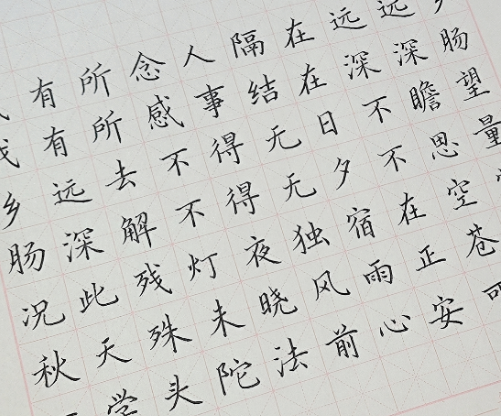 有所念人隔在远远
我有所感事结在深深肠
乡远去不得无日不瞻望
肠深解不得无夕不思量
况此残灯夜独宿在空
秋天殊未晓风雨正苍
学头陀法前心安